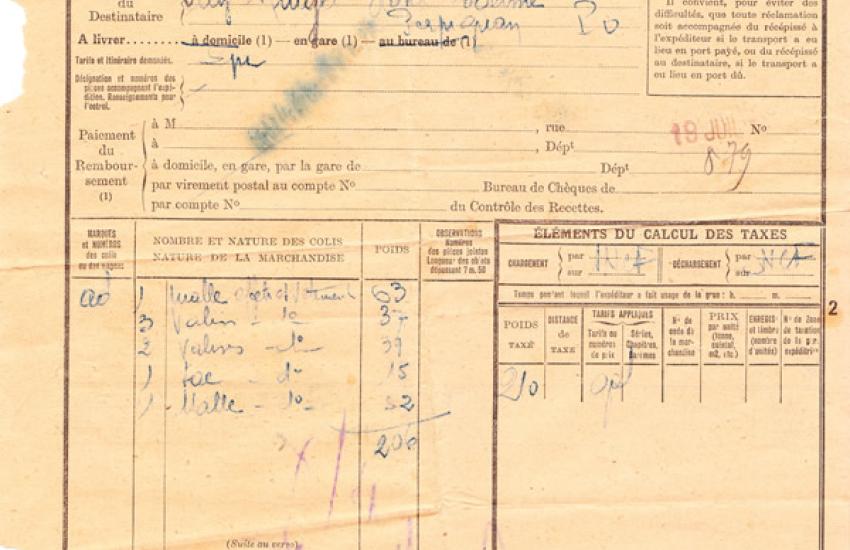 du
Destinataire
Perpignan P O
A livrer à domicile (1) — en gare (1) — au bureau de (1)
Tarifs et Itinéraire demandés.
Désignation et numéros des
pièces accompagnant l'expé-
dition. Renseignements pour
l'octroi.
Il convient, pour éviter des
difficultés, que toute réclamation
soit accompagnée du récépissé à
l'expéditeur si le transport a eu
lieu en port payé, ou du récépissé
au destinataire, si le transport a
eu lieu en port dû.
Paiement
du
Rembour-
sement
(1)
à M , rue No
19 JUIL
à , Dépt
879
à domicile, en gare, par la gare de Dépt
par virement postal au compte No Bureau de Chèques de
par compte No du Contrôle des Recettes.
MARQUES
et NUMÉROS
des colis
ou des wagons
NOMBRE ET NATURE DES COLIS
NATURE DE LA MARCHANDISE
POIDS
OBSERVATIONS
Numéros
des pièces jointes
Longueur des objets
dépassant 7 m. 50
ad 1 malle effets vêtement 63
3 Valises do 37
2 Valises do 39
1 sac do 15
1 Malle do 52
206
(Suite au verso)
ÉLÉMENTS DU CALCUL DES TAXES
CHARGEMENT par sur
DÉCHARGEMENT par sur
Temps pendant lequel l'expéditeur a fait usage de la grue : h. m.
POIDS
TAXÉ
DISTANCE
de
TAXE
TARIFS APPLIQUÉS
Tarifs ou
numéros
de prix
Séries,
Chapitres,
Barèmes
No de
code de la
mar-
chandise
PRIX
par unité
(tonne,
quintal,
m2, etc.)
ENREGIS-
et timbre
(nombre
d'unités)
No de Zone
de taxation
de la g.
expéditri
210
2